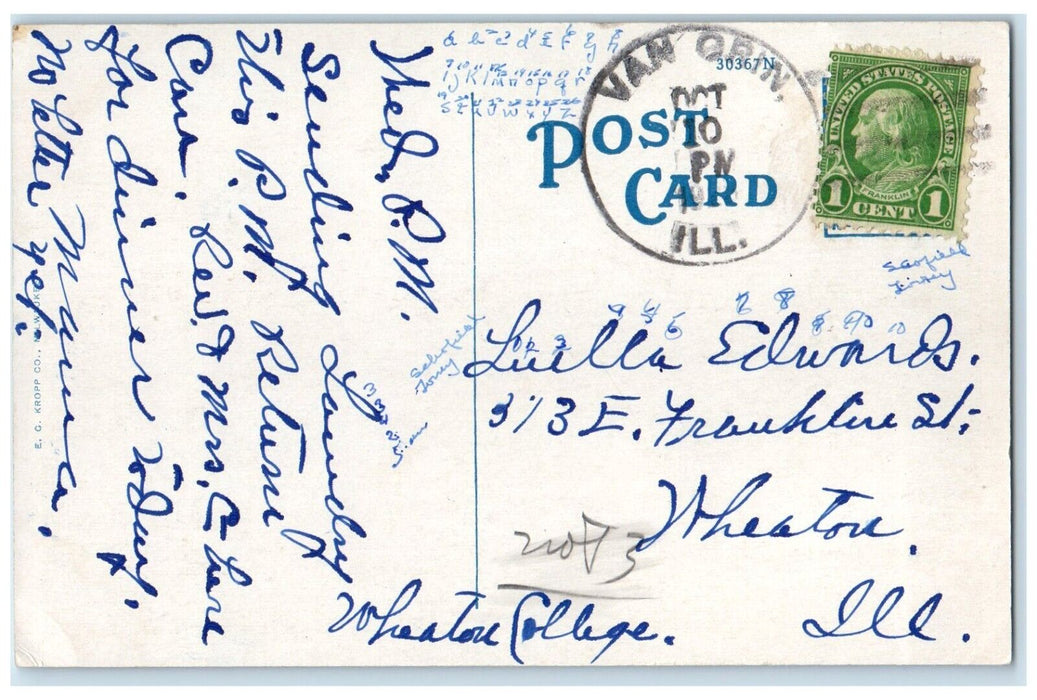 Wed. P.M.
Sending Laundry
this P.M. Return
Car. Rev. & Mrs. C here
for dinner today.
No letter Mama.
yet.
a b c d e f g h
i j k l m n o p q r
s t u v w x y z
30367N
POST
CARD
VAN ORIN,
OCT
10
PM
ILL.
UNITED STATES POSTAGE
FRANKLIN
1 CENT 1
Luella Edwards.
313 E. Franklin St.
Wheaton,
Wheaton College. Ill.
E. C. KROPP CO., MILWAUKEE